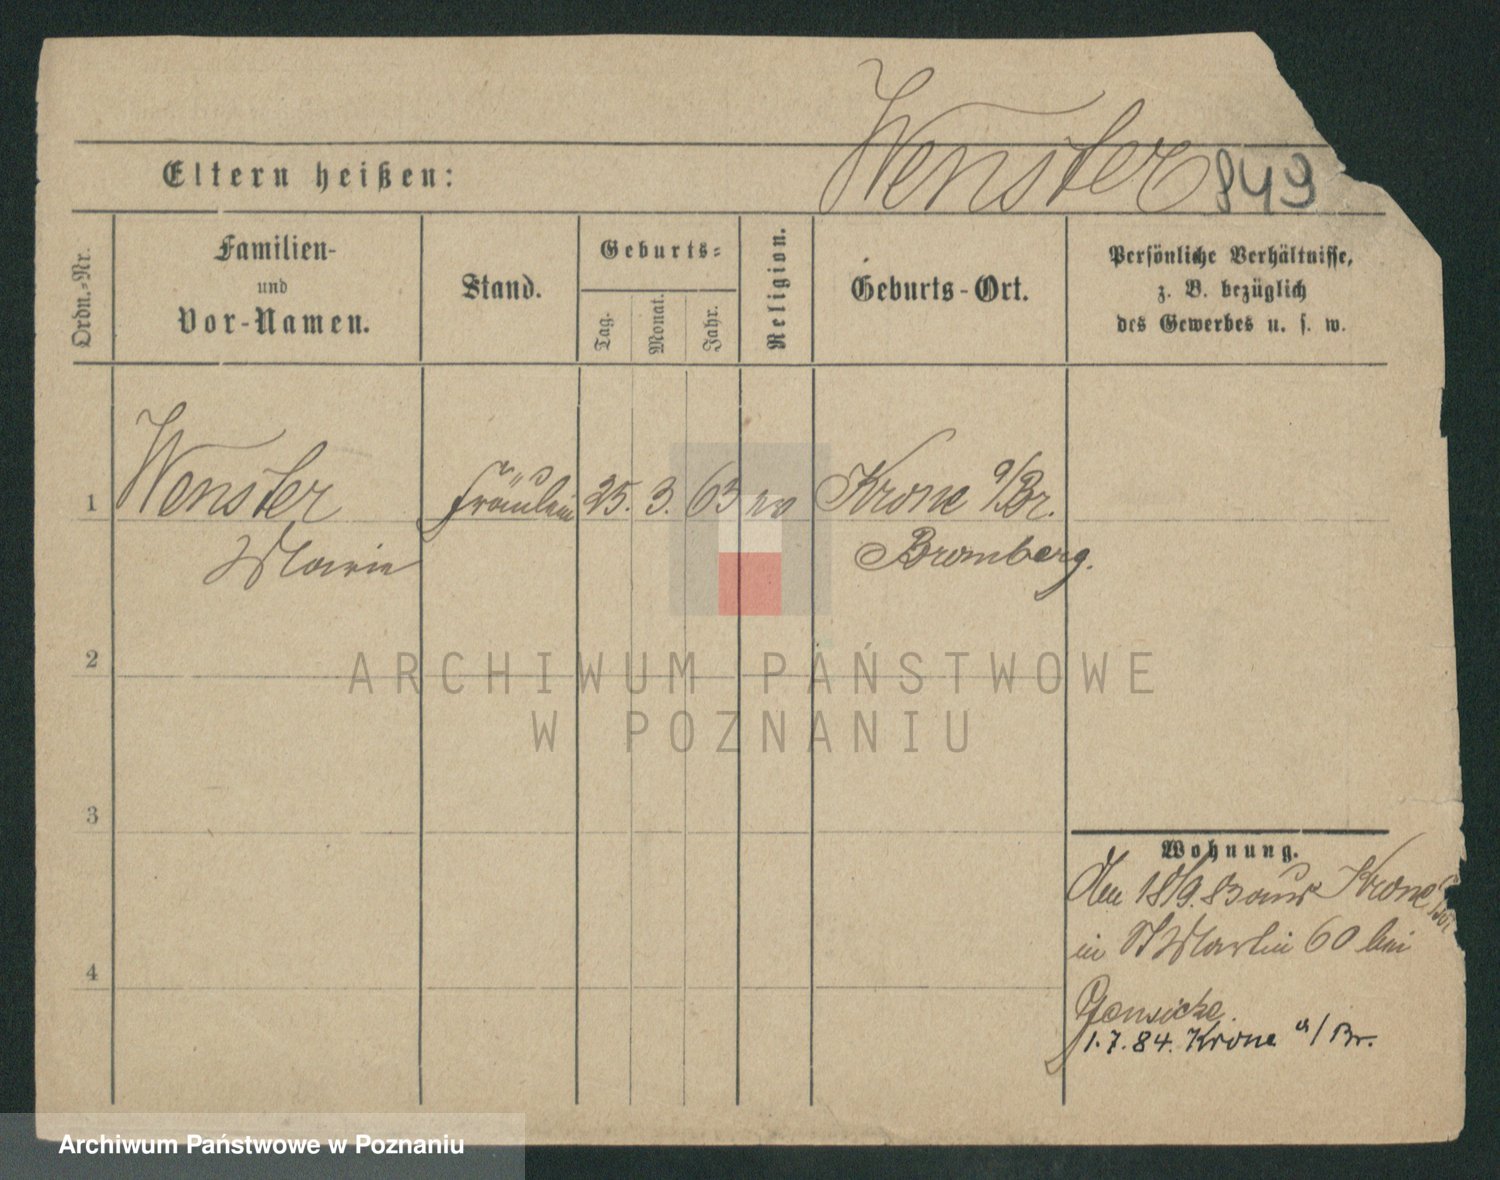 Wenster 849
Eltern heißen:
Ordn.-Nr.
Familien-
und
Vor-Namen.
Stand.
Geburts-
Tag.
Monat.
Jahr.
Religion.
Geburts-Ort.
Persönliche Verhältnisse,
z. B. bezüglich
des Gewerbes u. s. w.
1 Wenster Fräulein 25. 3. 63 Krone a/Br.
Marie Bromberg.
2
3
4
Wohnung.
Am 18/9. 83 aus Krone
in St Martin 60 bei
1.7.84. Krone a/Br.
ARCHIWUM PAŃSTWOWE
W POZNANIU
Archiwum Państwowe w Poznaniu